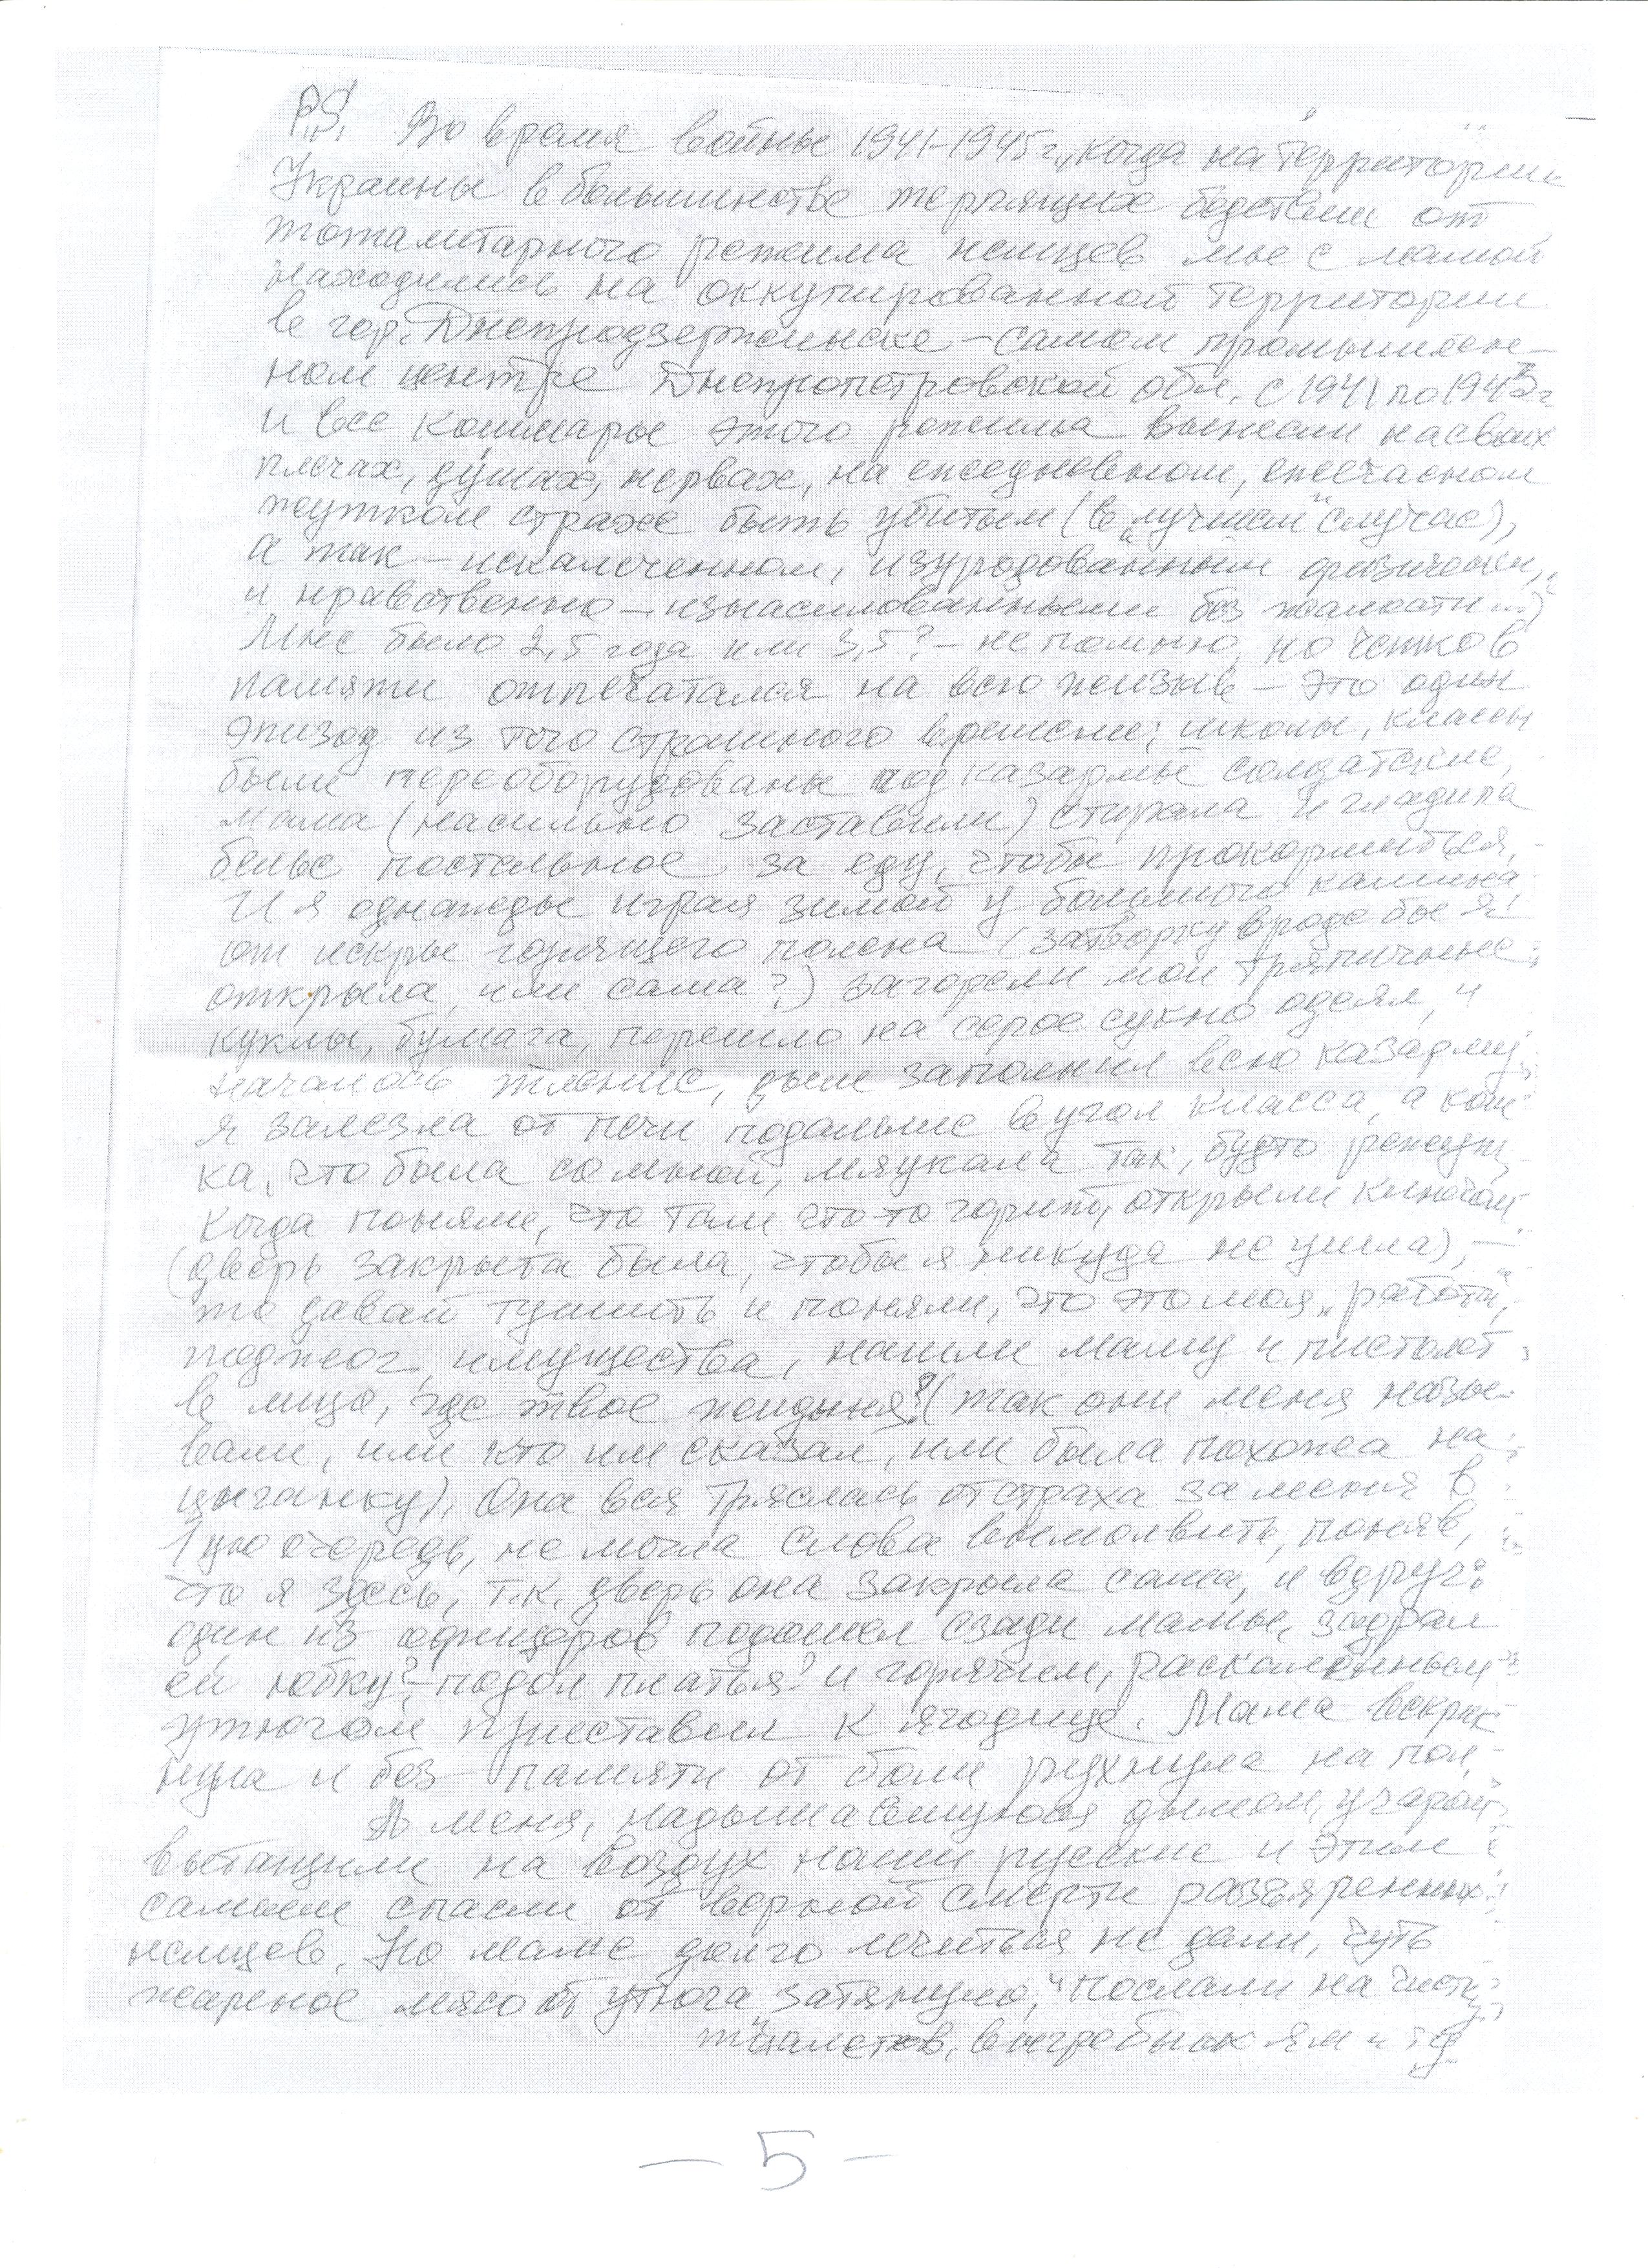 P.S. Во время войны 1941-1945 г., когда на территории
Украины в большинстве терпящих бедствии от
тоталитарного режима немцев мы с мамой
находились на оккупированной территории
в гор. Днепродзержинске – самом промышлен-
ном центре Днепропетровской обл. с 1941 по 1943 г
и все кошмары этого режима вынесли на своих
плечах, душах, нервах, на ежедневном, ежечасном
жутком страхе быть убитым (в "лучшем" случае),
а так – искалеченном, изуродованными физически,
и нравственно – изнасилованными без жалости...)
Мне было 2,5 года или 3,5? – не помню, но четко в
памяти отпечатался на всю жизнь – это один
эпизод из того страшного времени; школы, классы
были переоборудованы под казармы солдатские,
мама (насильно заставили) стирала и гладила
белье постельное за еду, чтобы прокормиться,
И я однажды играя зимой у большого камина
от искры горящего полена (затворку вроде бы я
открыла, или сама?) загорели мои тряпичные
куклы, бумага, перешло на серое сукно одеял, и
началось тление, дым заполнил всю казарму,
я залезла от печи подальше в угол класса, а кош-
ка, что была со мной, мяукала так, будто режут,
Когда поняли, что там что то горит, открыли ключом
(дверь закрыта была, чтобы я никуда не ушла), –
то давай тушить и поняли, что это моя "работа",
поджог имущества, нашли маму и пистолет
в лицо, где твое жидыня? (так они меня назы-
вали, или кто им сказал, или была похожа на
цыганку). Она вся тряслась от страха за меня в
1ую очередь, не могла слова вымолвить, поняв,
что я здесь, т.к. дверь она закрыла сама, и вдруг:
один из офицеров подошел сзади мамы, задрал
ей юбку? – подол платья? и горячим, раскаленным
утюгом приставил к ягодице. Мама вскрик-
нула и без памяти от боли рухнула на пол,
А меня, надышавшуюся дымом, угаром
вытащили на воздух наши русские и этим
самым спасли от верной смерти разъяренных
немцев. Но маме долго лечиться не дали, чуть
жареное мясо от утюга затянуло, послали на чистку
туалетов, выгребных ям и тд
– 5 –